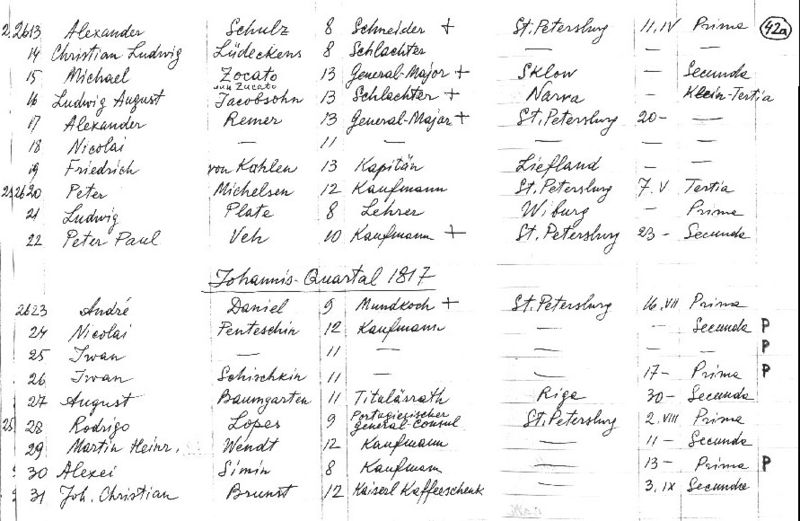 2.2613 Alexander Schulz 8 Schneider + St. Petersburg 11. IV Prima 42a
14 Christian Ludwig Lüdeckens 8 Schlachter — — —
15 Michael Zocato 13 General-Major + Sklow — Secunda
von Zucato
16 Ludwig August Jacobsohn 13 Schlachter + Narva — Klein-Tertia
17 Alexander Remer 13 General-Major + St. Petersburg 20 — —
18 Nicolai — 11 — — — —
19 Friedrich von Kohlen 13 Kapitän Liefland — —
2620 Peter Michelsen 12 Kaufmann St. Petersburg 7. V Tertia
21 Ludwig Plate 8 Lehrer Wiburg — Prima
22 Peter Paul Veh 10 Kaufmann + St. Petersburg 23 — Secunda
Johannis-Quartal 1817
2623 André Daniel 9 Mundkoch + St. Petersburg 16. VII Prima
24 Nicolai Penteschin 12 Kaufmann — — Secunda P
25 Iwan — 11 — — — — P
26 Iwan Schischkin 11 — — 17 — Prima P
27 August Baumgarten 11 Titulärrath Riga 30 — Secunda
28 Rodrigo Lopes 9 Portugiesischer General-Consul St. Petersburg 2. VIII Prima
29 Martin Heinr. Wendt 12 Kaufmann — 11 — Secunda
30 Alexei Simin 8 Kaufmann — 13 — Prima P
31 Joh. Christian Brunst 12 Kaiserl Kaffeeschenk — 3. IX Secunda